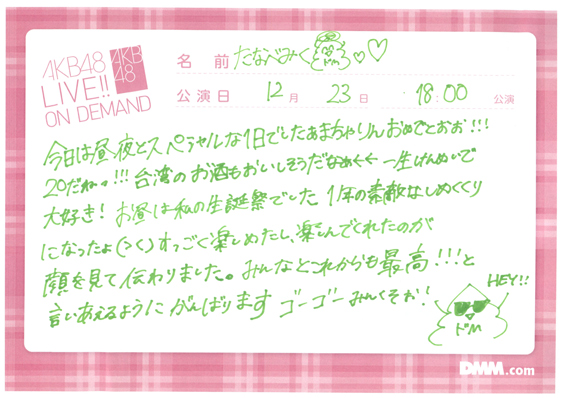 AKB48
LIVE!!
ON DEMAND
AKB
48
名 前 たなべみく
ドM
公演日 12月 23日 18:00 公演
今日は昼夜とスペシャルな1日でしたあまちゃりんおめでとおお!!!
20だねっ!!! 台湾のお酒もおいしそうだなめ 一生けんめいで
大好き! お昼は私の生誕祭でした 1年の素敵なしめくくり
になったよ(>く) すっごく楽しめたし、楽しんでくれたのが
顔を見て伝わりました。みんなとこれからも最高!!!と
言いあえるように がんばります ゴーゴーみんくそお!
HEY!!
ドM
DMM.com